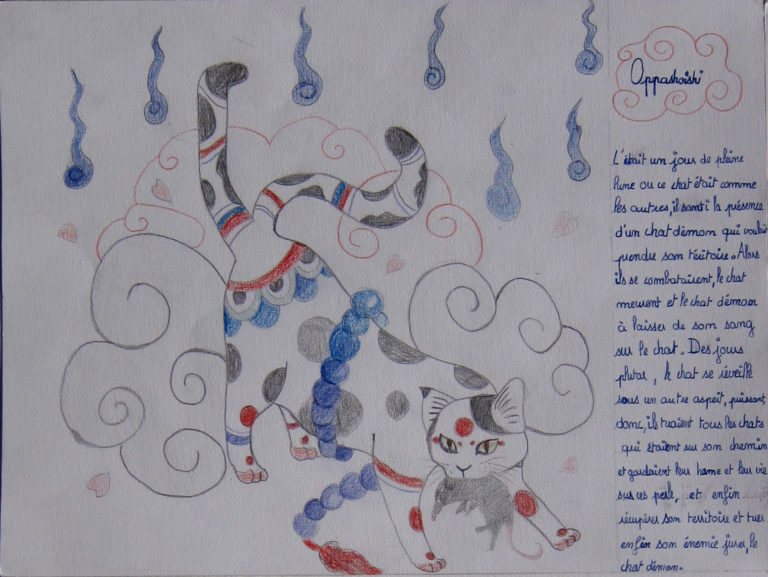 Oppashoishi
L'était un jour de pleine
lune ou ce chat était comme
les autres, il santi la présence
d'un chat démon qui voulait
prendre son téritoire. Alors
ils se combataient, le chat
meurent et le chat démon
à laisser de son sang
sur le chat. Des jours
plutas, le chat se réveille
sous un autre aspeït, puissant,
donc, ils tuaient tous les chats
qui étaient sur son chemin
et gardaient leur hame et leur vie
sus ces perle, et enfin
récupérer son territoire et tuer
enfin son énemie jurer, le
chat démon.